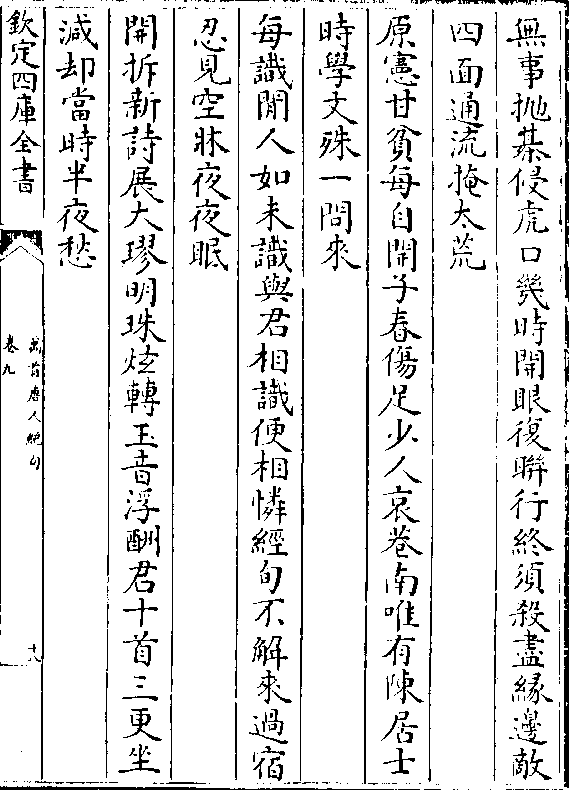 無事抛棊侵虎口幾時開眼復聨行終須殺盡緣邊敵
四面通流掩太荒
原憲甘貧每自開子春傷足少人哀巷南唯有陳居士
時學文殊一問來
每識閒人如未識與君相識便相憐經旬不解來過宿
忍見空牀夜夜眠
開拆新詩展大璆明珠炫轉玉音浮酬君十首三更坐
減却當時半夜愁
欽定四庫全書
萬首唐人絶句
卷九
十八